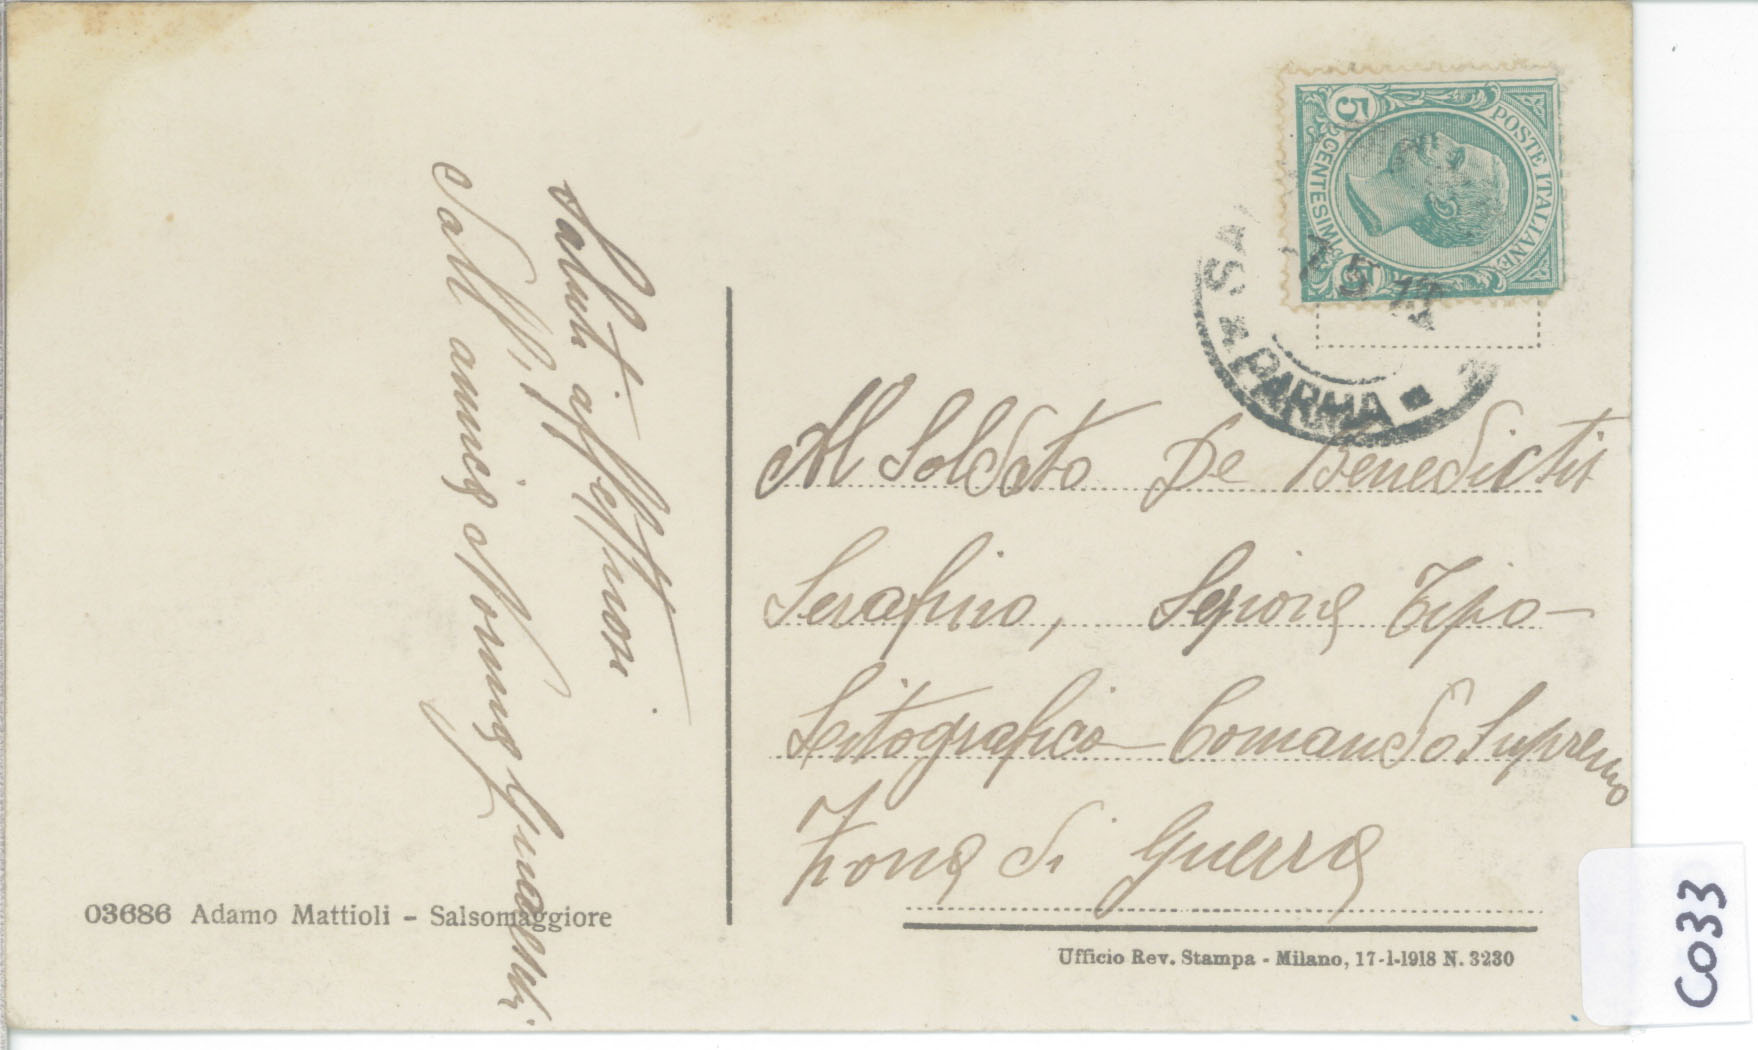 Saluti affettuosi
Dall' amico
03686 Adamo Mattioli - Salsomaggiore
POSTE ITALIANE
5 CENTESIMI 5
7 5
PARMA
Al Soldato De Benedictis
Serafino, Sezione Tipo-
Litografica Comando Supremo
Zona di Guerra
Ufficio Rev. Stampa - Milano, 17-1-1918 N. 3230
C033